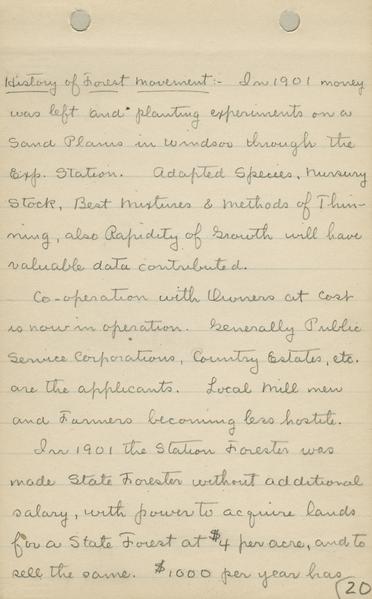 History of Forest Movement:- In 1901 money
was left and planting experiments on a
Sand Plains in Windsor through the
Exp. Station. Adapted Species, Nursury
Stock, Best Mixtures & Methods of Thin-
ning, also Rapidity of Growth will have
valuable data contributed.
Co-operation with Owners at cost
is now in operation. Generally Public
Service Corporations, Country Estates, etc.
are the applicants. Local Mill men
and Farmers becoming less hostile.
In 1901 the Station Forester was
made State Forester without additional
salary, with power to acquire lands
for a State Forest at $4 per acre, and to
sell the same. $1000 per year has
20